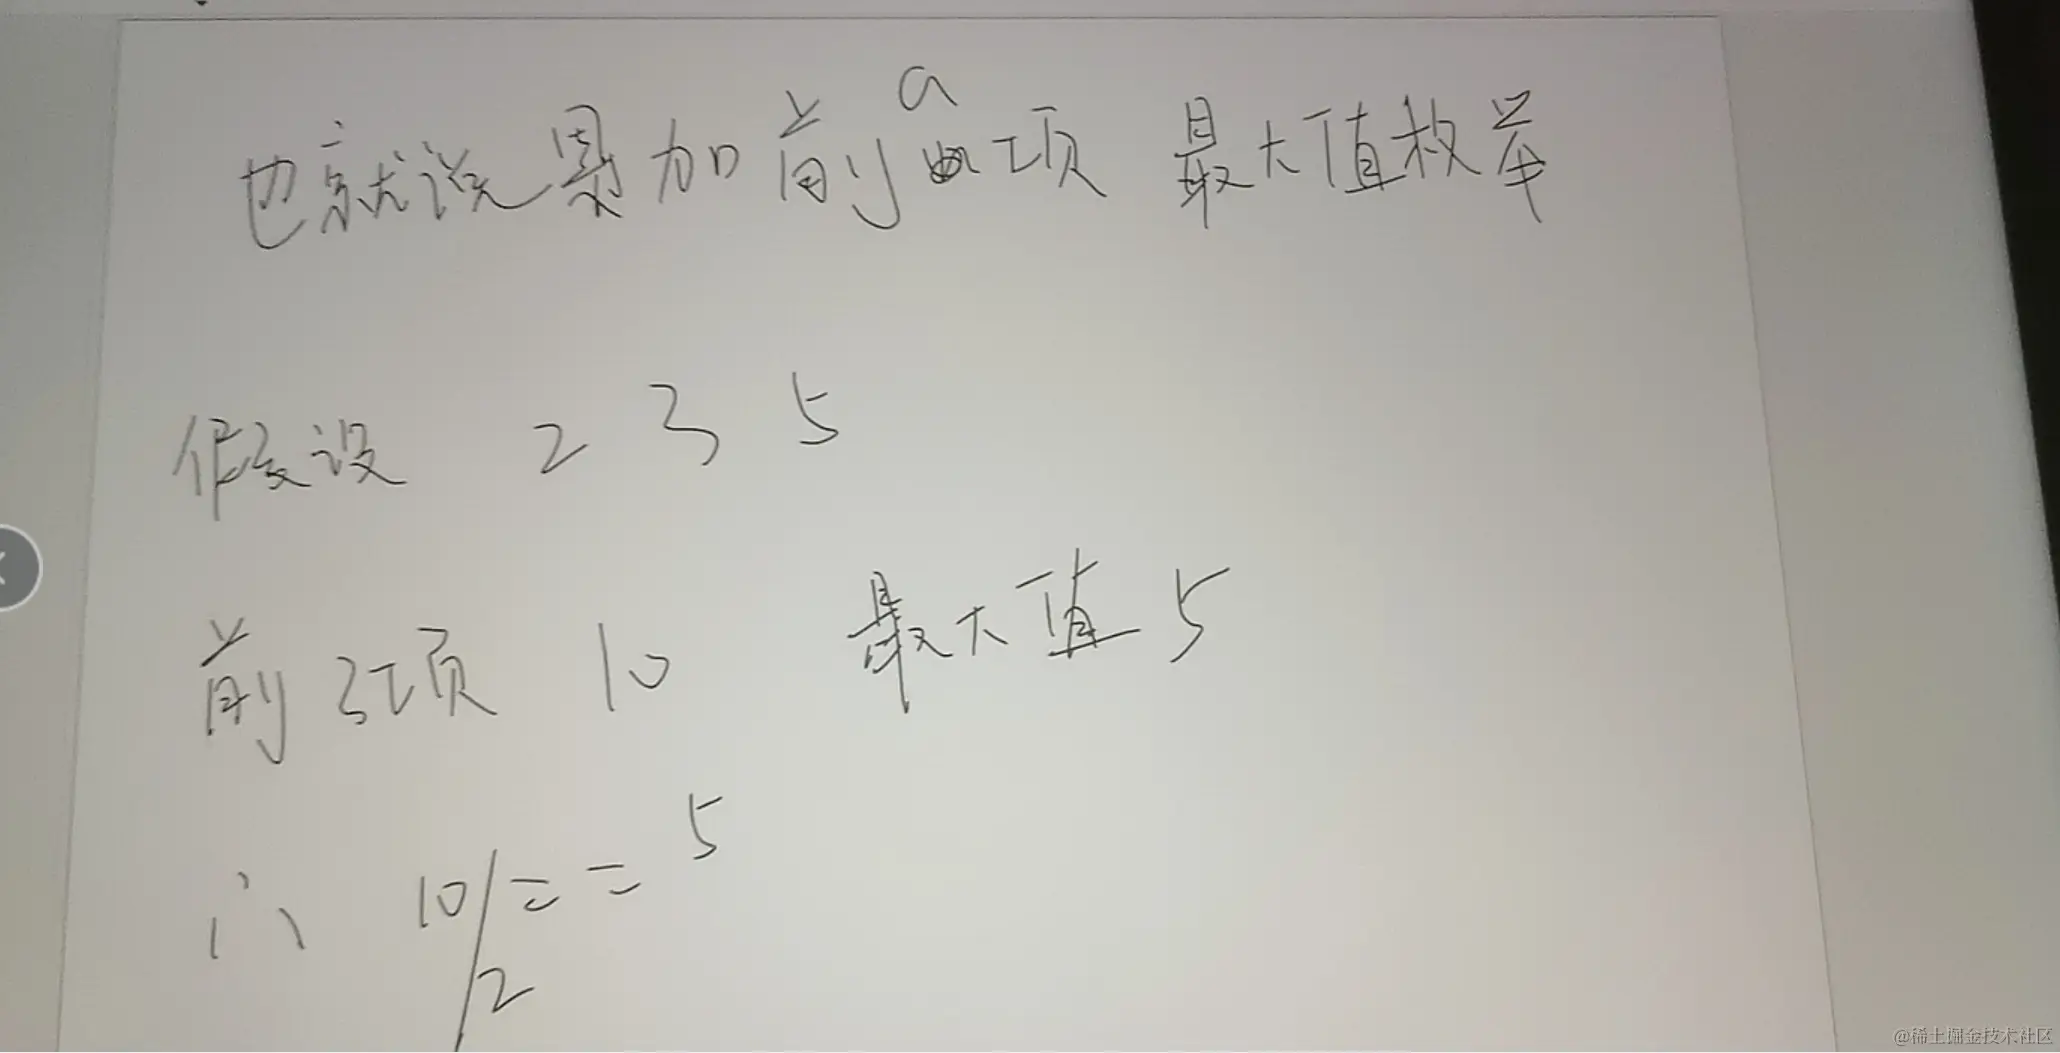 也就说累加前a项 最大值枚举
假设 2 3 5
前3项 10 最大值5
∴ 10/2 == 5
@稀土掘金技术社区